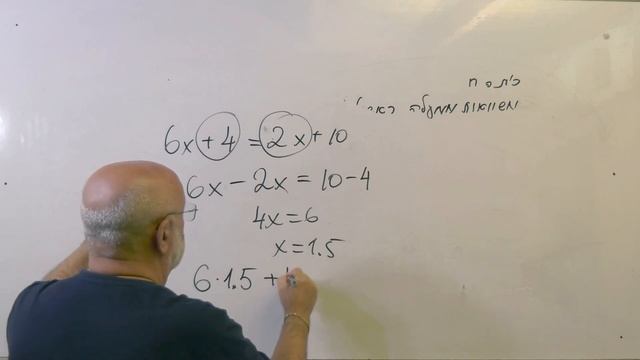 כיתה ח
משוואות ממעלה ראשונה
6x + 4 = 2x + 10
6x - 2x = 10 - 4
4x = 6
x = 1.5
6 · 1.5 +